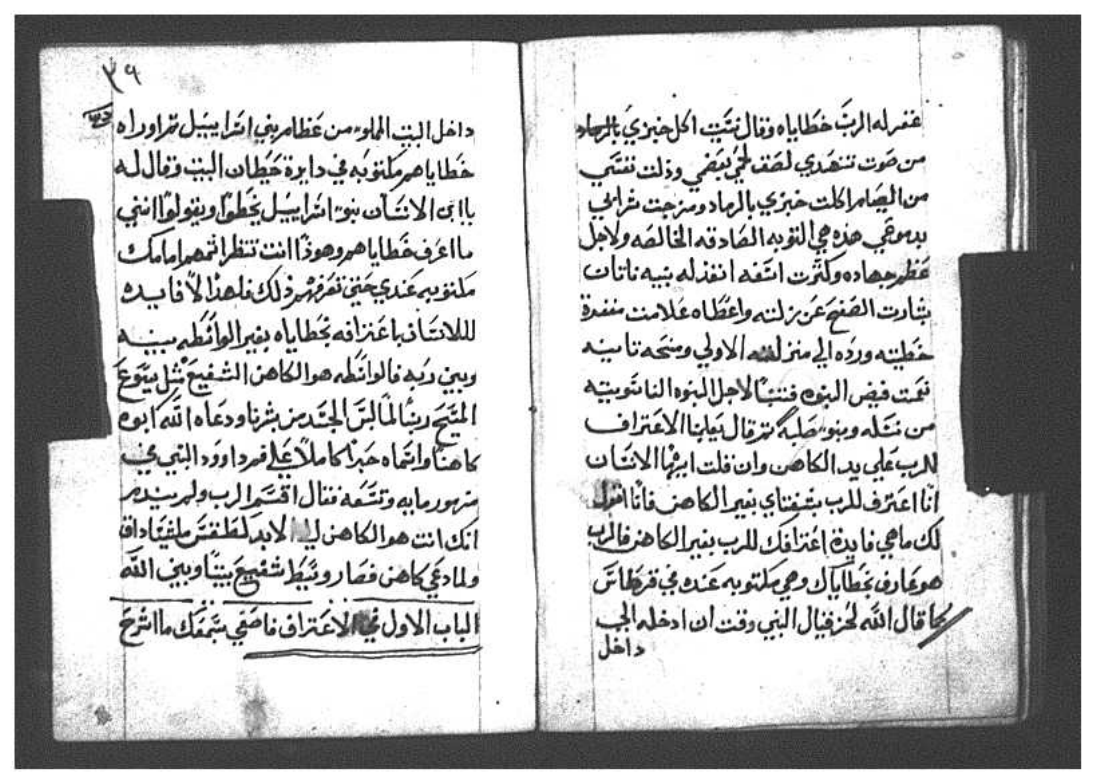 غفر له الرب خطاياه وقال نسيت اكل خبزي بالرماد
من صوت تنهدي لصق لحمي بعضي وذلت نفسي
من الصيام اكلت خبزي بالرماد ومزجت شرابي
بدموعي هذه هي التوبه الصادقه الخالصه ولاجل
عظم جهاده وكثرت اسفه انفذ له نبيه ناتان
بشارت الصفح عن زلته واعطاه علامت مغفرة
خطيته ورده الي منزلته الاولي ومنحه تانيه
نعمت فيض النبوه فتنبا لاجل البنوه الناسوتيه
من نسله وبنو صلبه ثم قال يعلمنا الاعتراف
للرب علي يد الكاهن وان قلت ايها الانسان
انا اعترف للرب بشفتاي بغير الكاهن فانا اقول
لك ما هي فايدة اعترافك للرب بغير الكاهن فالرب
هو عارف بخطاياك وهي مكتوبه عنده في قرطاس
كما قال الله لحزقيال النبي وقت ان ادخله الجب
داخل
٣٩
داخل البيت المملوء من عظام بني اسراييل ثم اوراه
خطاياهم مكتوبه في دايرة حيطان البيت وقال له
يا ابن الانسان بنو اسراييل يخطوا ويقولوا انني
ما اعرف خطاياهم وهوذا انت تنظر اثمهم امامك
مكتوبه عندي حتي تعرفهم ذلك فلهذا لا فايده
للانسان باعترافه بخطاياه بغير الواسطه بينه
وبين ربه فالواسطه هو الكاهن الشفيع مثل يسوع
المسيح ربنا لما لبس الجسد من بشرنا ودعاه الله ابوه
كاهنا واسماه حبرا كاملا علي فم داوود النبي في
مزمور مايه وتسعه فقال اقسم الرب ولم يندم
انك انت هو الكاهن الي الابد لطقس ملشيساداق
ولما دعي كاهن فصار وسيط شفيع بيننا وبين الله
الباب الاول في الاعتراف فاصغي بسمعك ما اشرح